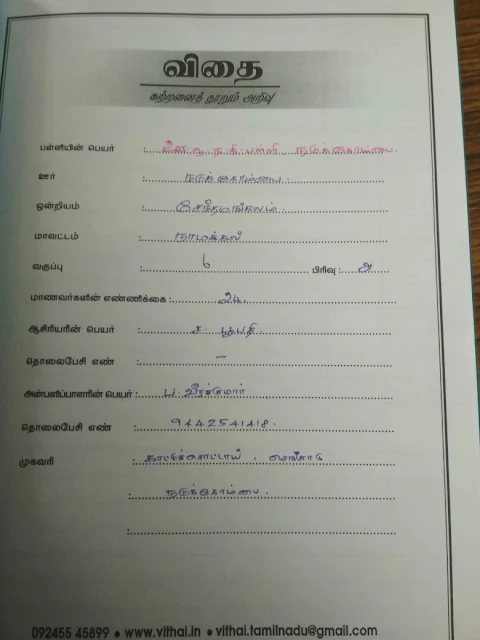 விதை
கற்றனைத் தூறும் அறிவு
பள்ளியின் பெயர் : ஊ.ஒ.ந.நி பள்ளி நடுக்கொம்பை.
ஊர் : நடுக்கொம்பை.
ஒன்றியம் : சேந்தமங்கலம்.
மாவட்டம் : நாமக்கல்
வகுப்பு : 6 பிரிவு : அ
மாணவர்களின் எண்ணிக்கை : 24.
ஆசிரியரின் பெயர் : ச. பூபதி
தொலைபேசி எண் : –
அன்பளிப்பாளரின் பெயர் : ப. வீரக்குமார்
தொலைபேசி எண் : 9442541418.
முகவரி : காட்டுக்கொட்டாய்,
நடுக்கொம்பை.
092455 45899 ● www.vithai.in ● vithai.tamilnadu@gmail.com